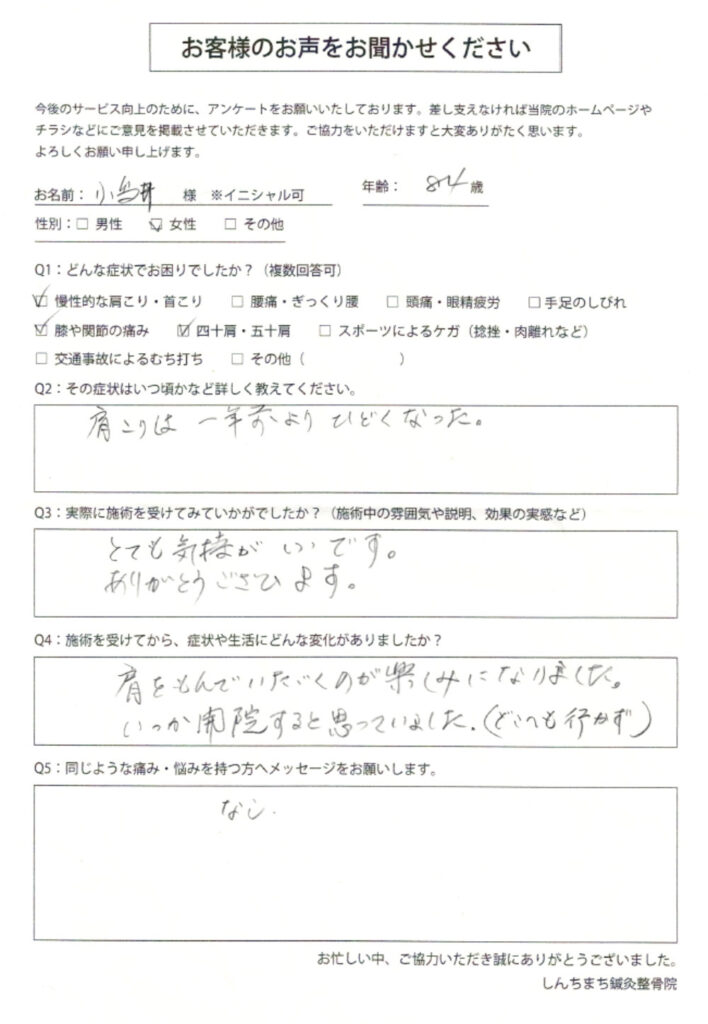 お客様のお声をお聞かせください
今後のサービス向上のために、アンケートをお願いいたしております。差し支えなければ当院のホームページや
チラシなどにご意見を掲載させていただきます。ご協力をいただけますと大変ありがたく思います。
よろしくお願い申し上げます。
お名前： 様 ※イニシャル可 年齢： 84 歳
性別：□ 男性 ☑ 女性 □ その他
Q1：どんな症状でお困りでしたか？（複数回答可）
☑ 慢性的な肩こり・首こり □ 腰痛・ぎっくり腰 □ 頭痛・眼精疲労 □ 手足のしびれ
☑ 膝や関節の痛み ☑ 四十肩・五十肩 □ スポーツによるケガ（捻挫・肉離れなど）
□ 交通事故によるむち打ち □ その他（ ）
Q2：その症状はいつ頃かなど詳しく教えてください。
肩こりは 一年前より ひどくなった。
Q3：実際に施術を受けてみていかがでしたか？（施術中の雰囲気や説明、効果の実感など）
とても気持が いいです。
ありがとうございます。
Q4：施術を受けてから、症状や生活にどんな変化がありましたか？
肩をもんでいただくのが楽しみになりました。
いつか開院すると思っていました.（どこへも行かず）
Q5：同じような痛み・悩みを持つ方へメッセージをお願いします。
なし.
お忙しい中、ご協力いただき誠にありがとうございました。
しんちまち鍼灸整骨院